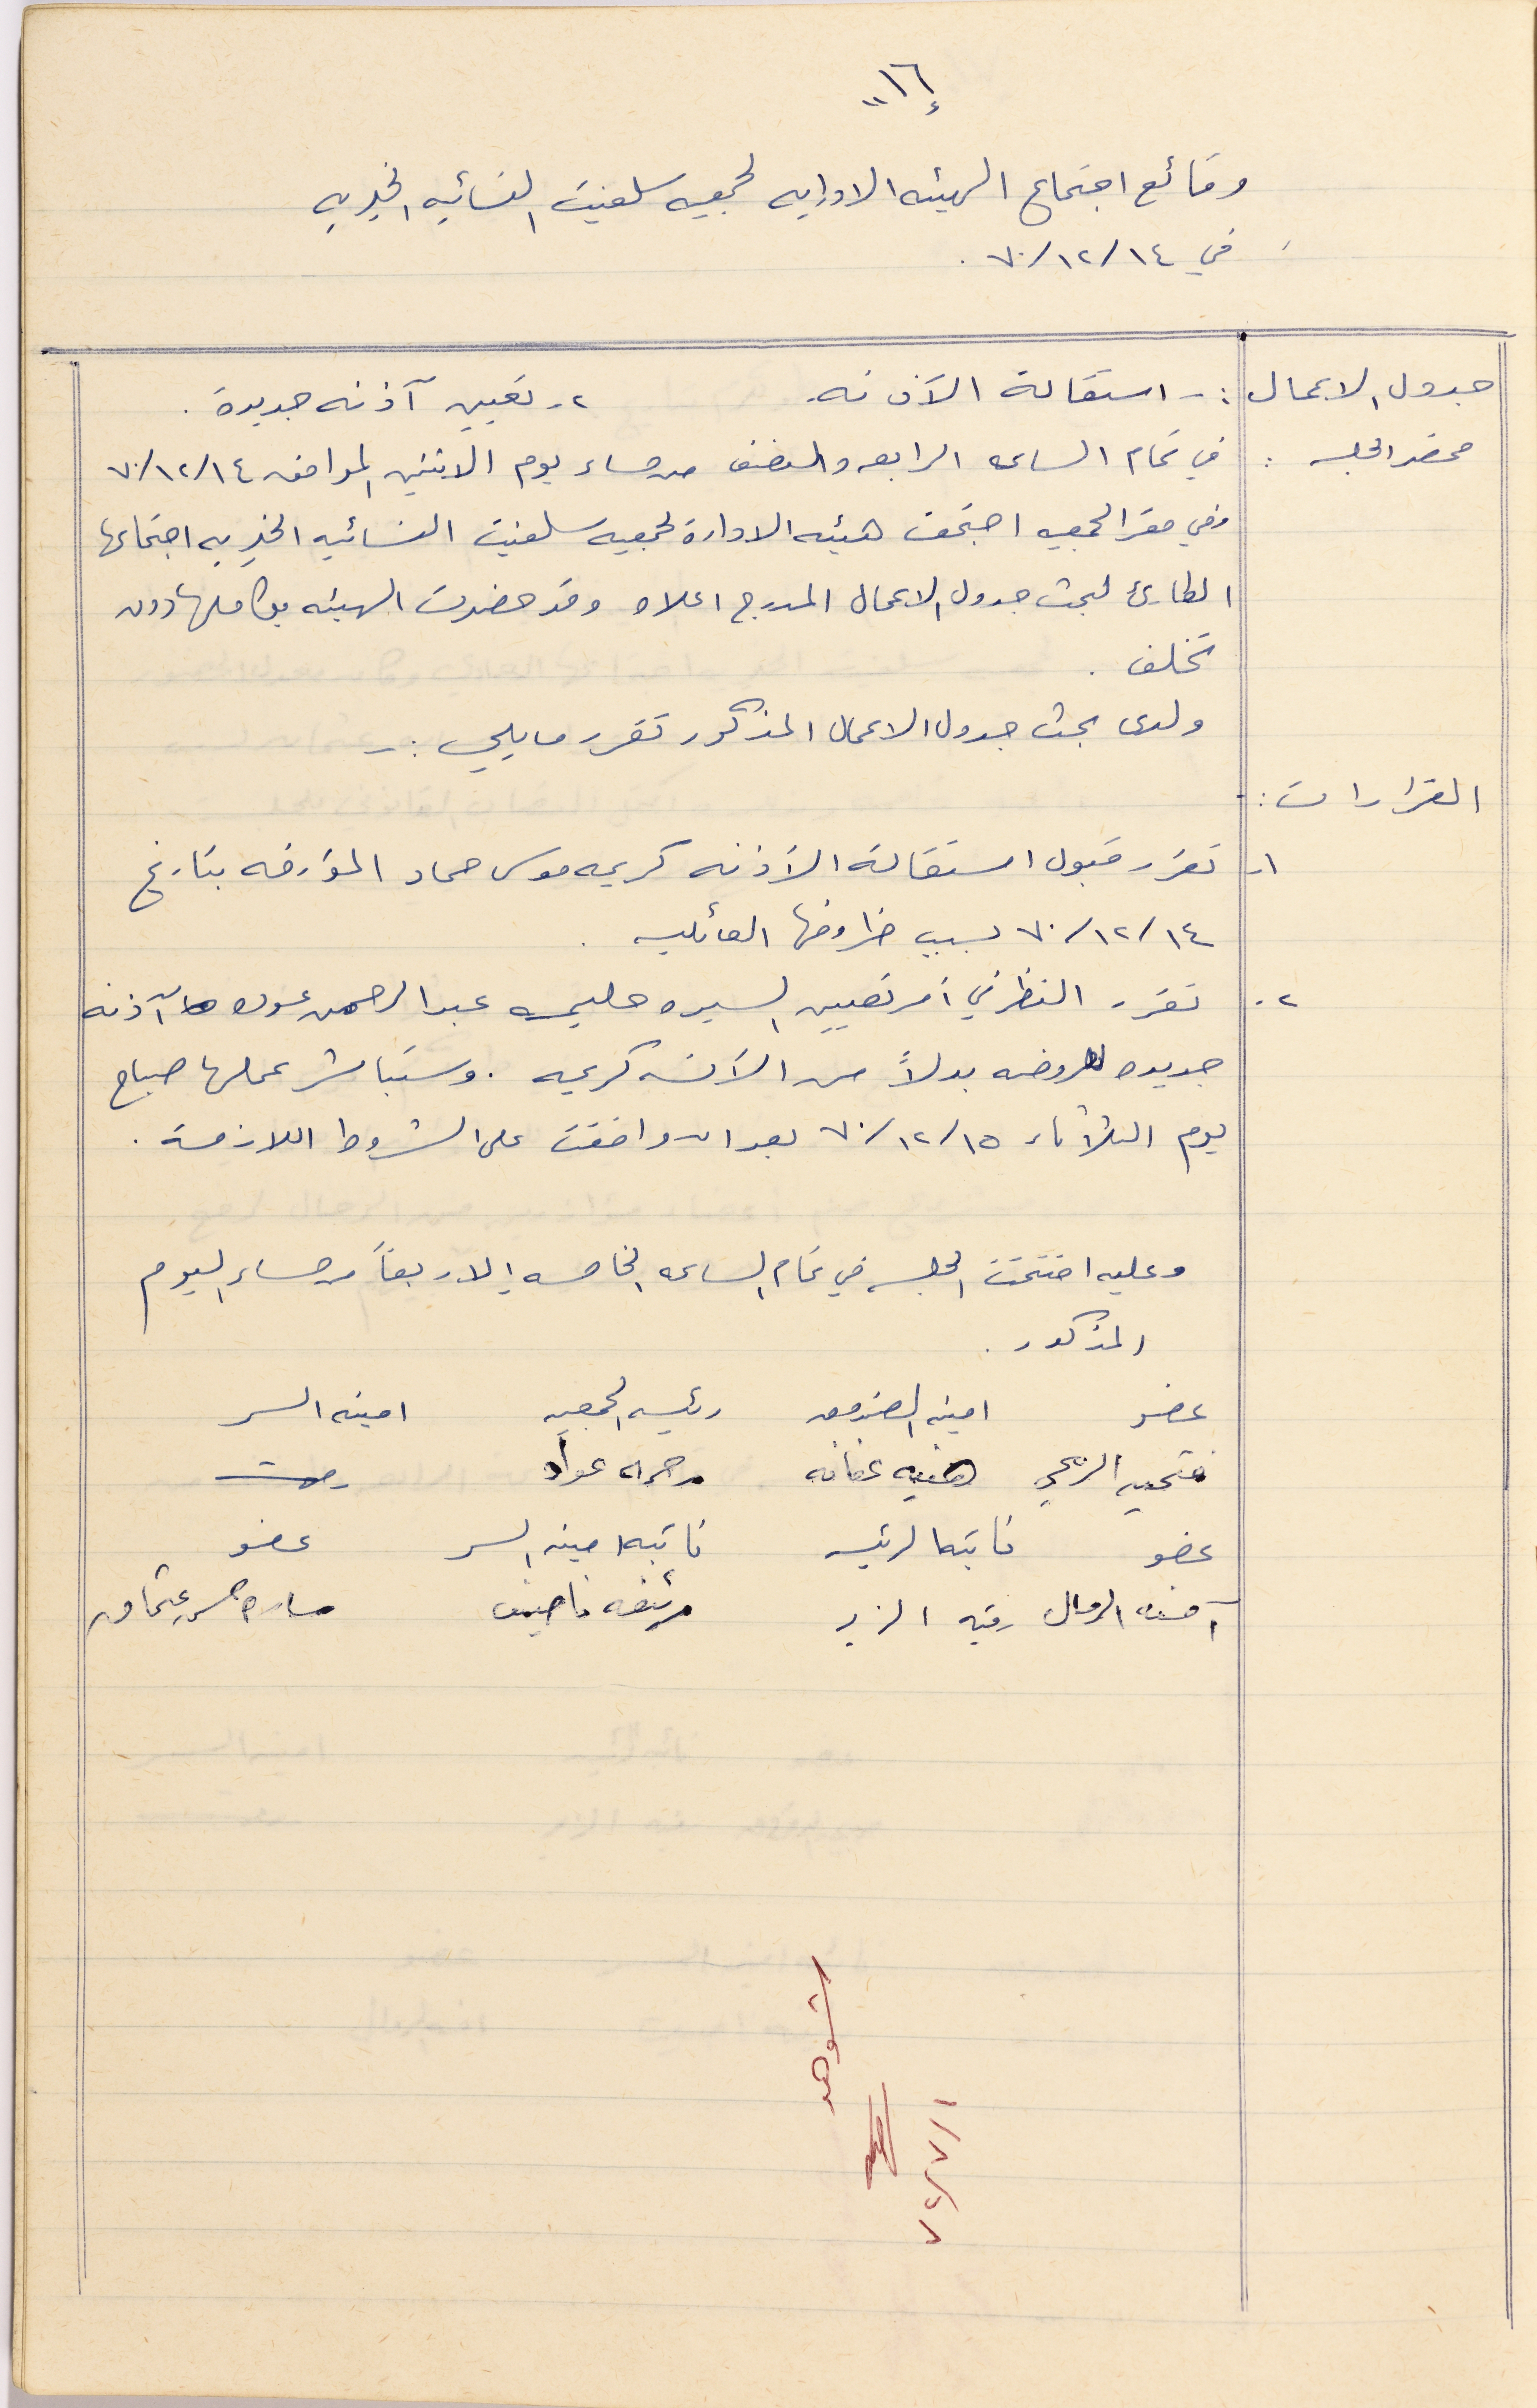 "١٦"
وقائع اجتماع الهيئه الاداريه لجمعيه سلفيت النسائيه الخيريه
في ١٤/١٢/٧٠ .
جدول الاعمال :- استقالة الآذنه. ٢- تعيين آذنه جديدة .
محضر الجلسه : في تمام الساعه الرابعه والنصف من مساء يوم الاثنين الموافق ١٤/١٢/٧٠
وفي مقر الجمعيه اجتمعت هيئه الادارة لجمعيه سلفيت النسائيه الخيريه اجتماعها
الطارئ لبحث جدول الاعمال المدرج اعلاه وقد حضرت الهيئه بكاملها دون
تخلف .
ولدى بحث جدول الاعمال المذكور تقرر مايلي :-
القرارات :-
١- تقرر قبول استقالة الآذنه كريمه موسى حماد المؤرخه بتاريخ
١٤/١٢/٧٠ بسبب ظروفها العائليه .
٢- تقرر النظر في امر تعيين السيده حليمه عبد الرحمن آذنه
جديده للروضه بدلاً من الآذنه كريمه . وستباشر عملها صباح
يوم الثلاثاء ١٥/١٢/٧٠ بعد ان وافقت على الشروط اللازمة .
وعليه اختتمت الجلسه في تمام الساعه الخامسه إلا ربعاً من مساء اليوم
المذكور .
عضو امينه الصندوق رئيسه الجمعيه امينه السر
فتحيه هنيه عفانه عواد
عضو نائبة الرئيسه نائبه امينه السر عضو
آمنه رقيه الزير ساره عثمان
شوهد
١/٧/٧٤